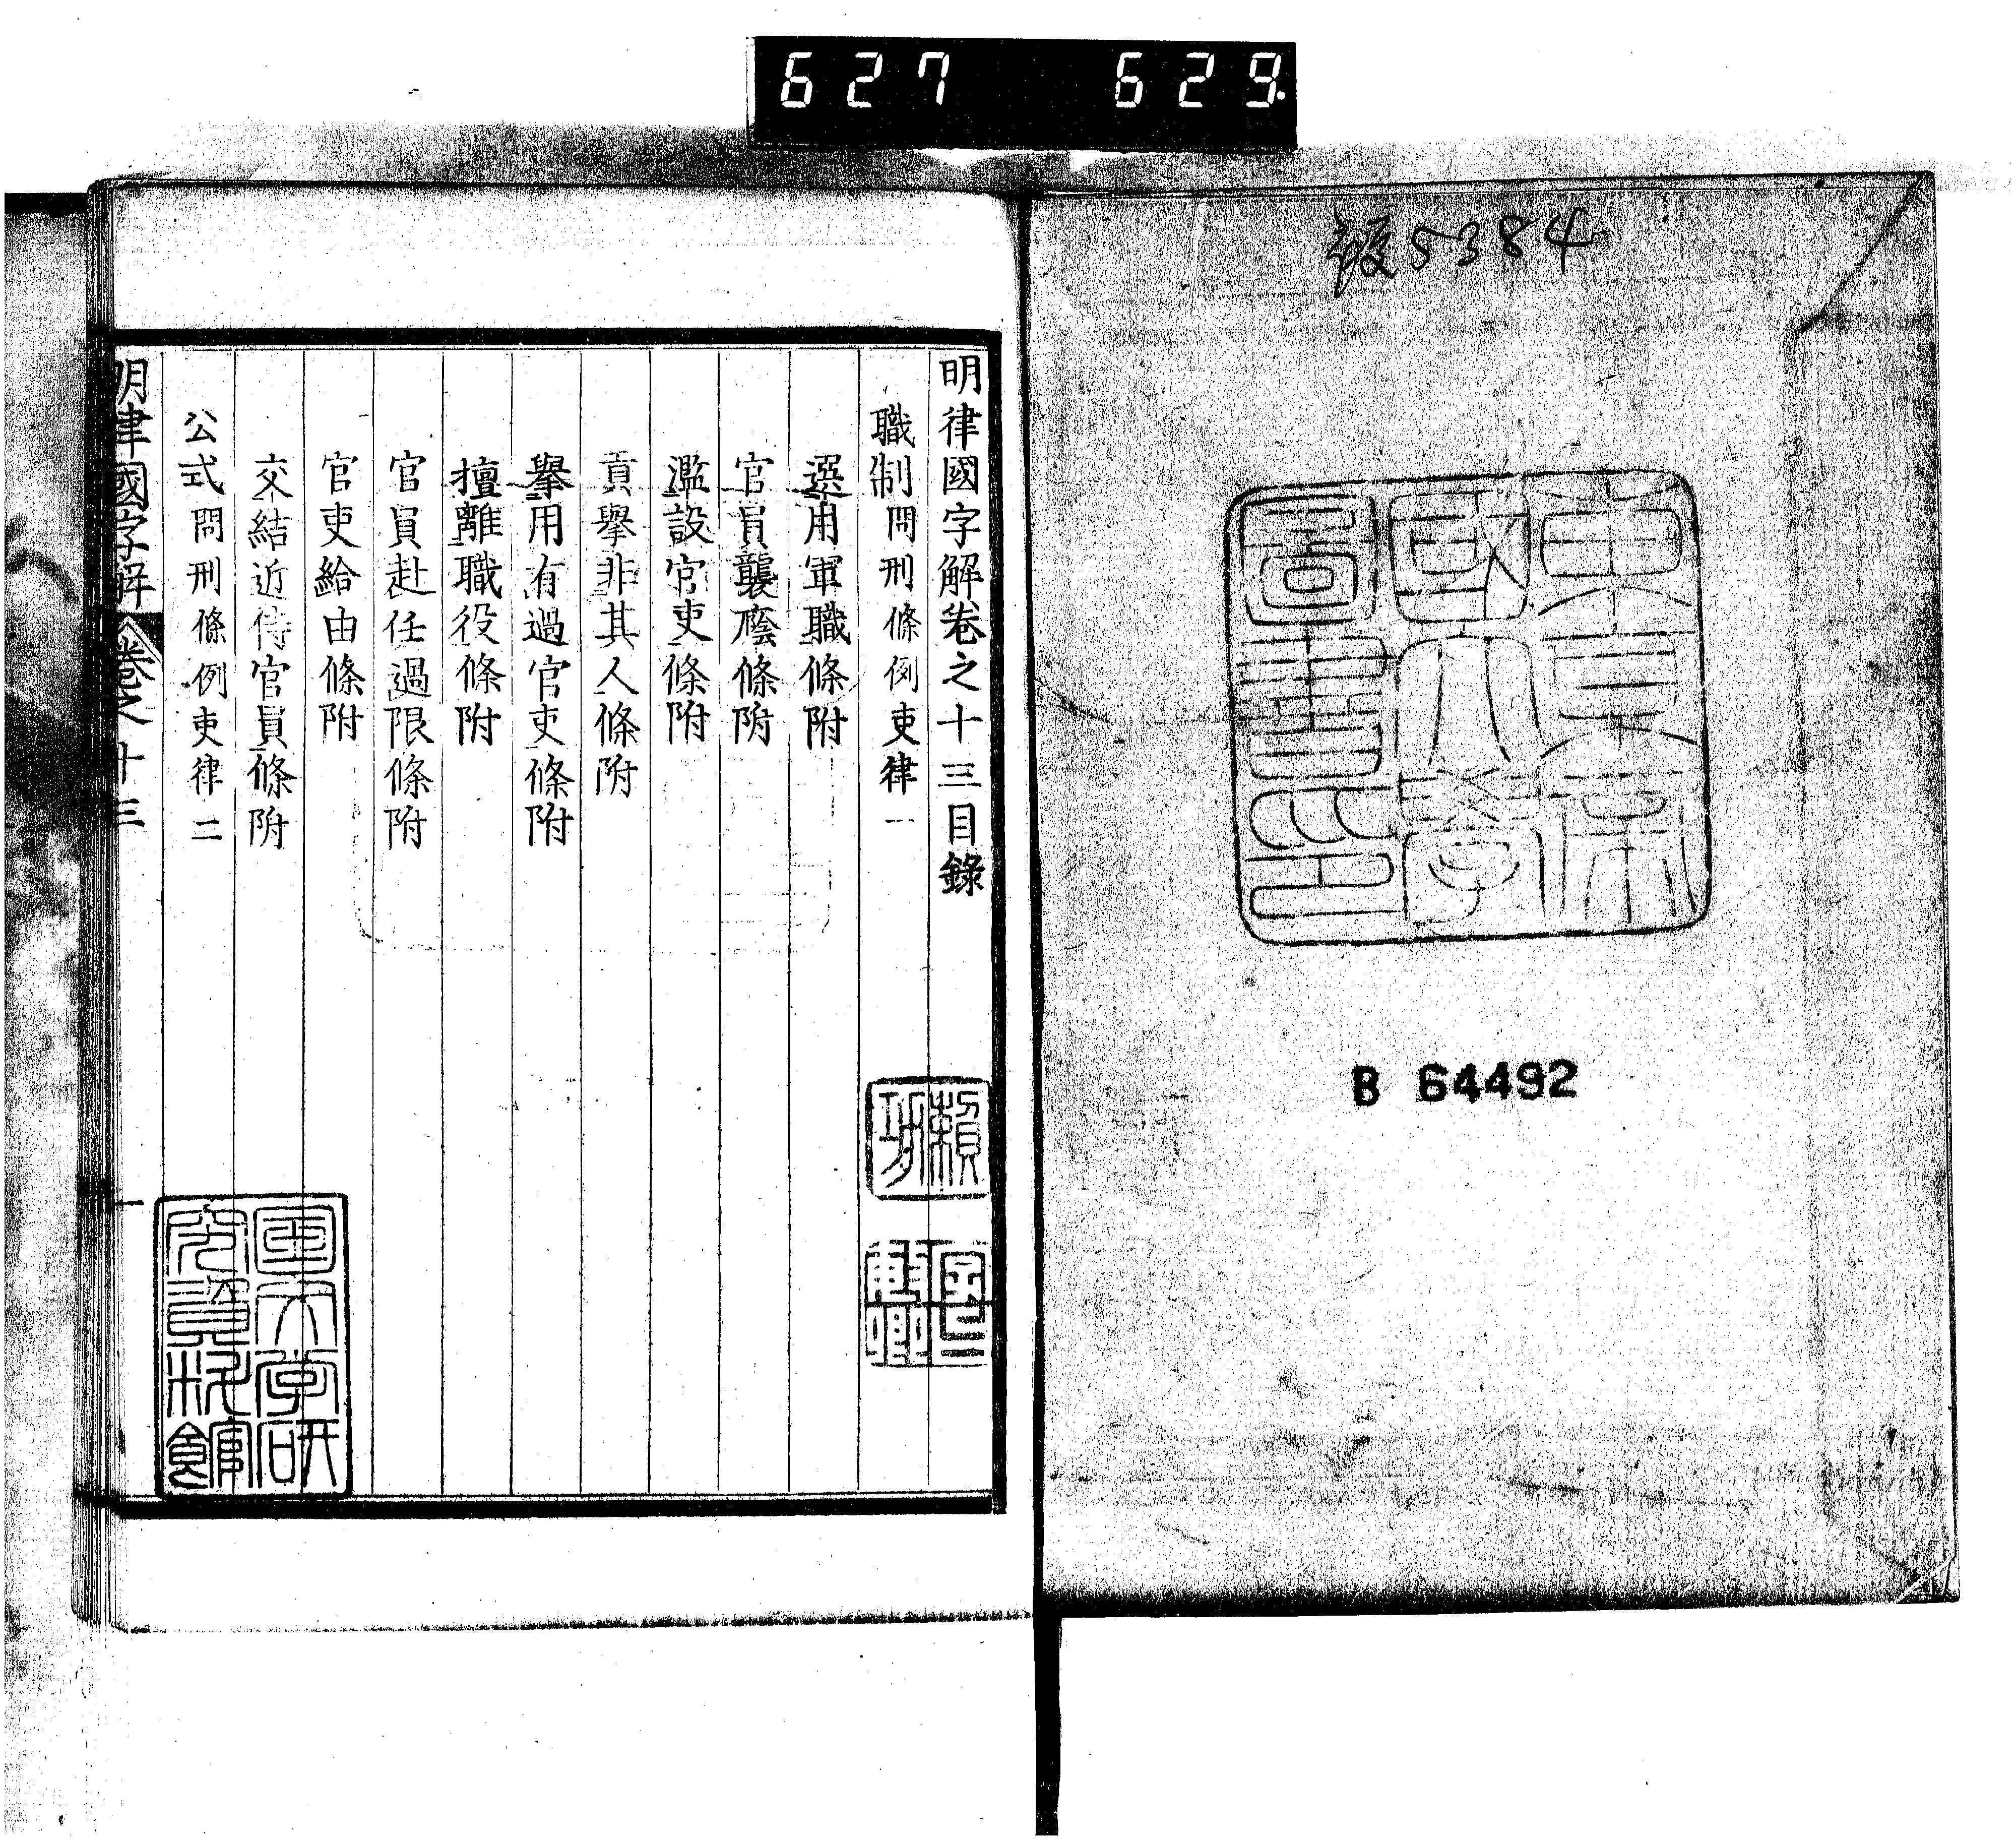 627 629.
5384
東京帝國大學圖書印
B 64492
明律國字解卷之十三目錄
職制 問刑條例吏律一
選用軍職條附
官員襲廕條附
濫設官吏條附
貢舉非其人條附
舉用有過官吏條附
擅離職役條附
官員赴任過限條附
官吏給由條附
交結近侍官員條附
公式 問刑條例吏律二
明律國字解 卷之十三 一